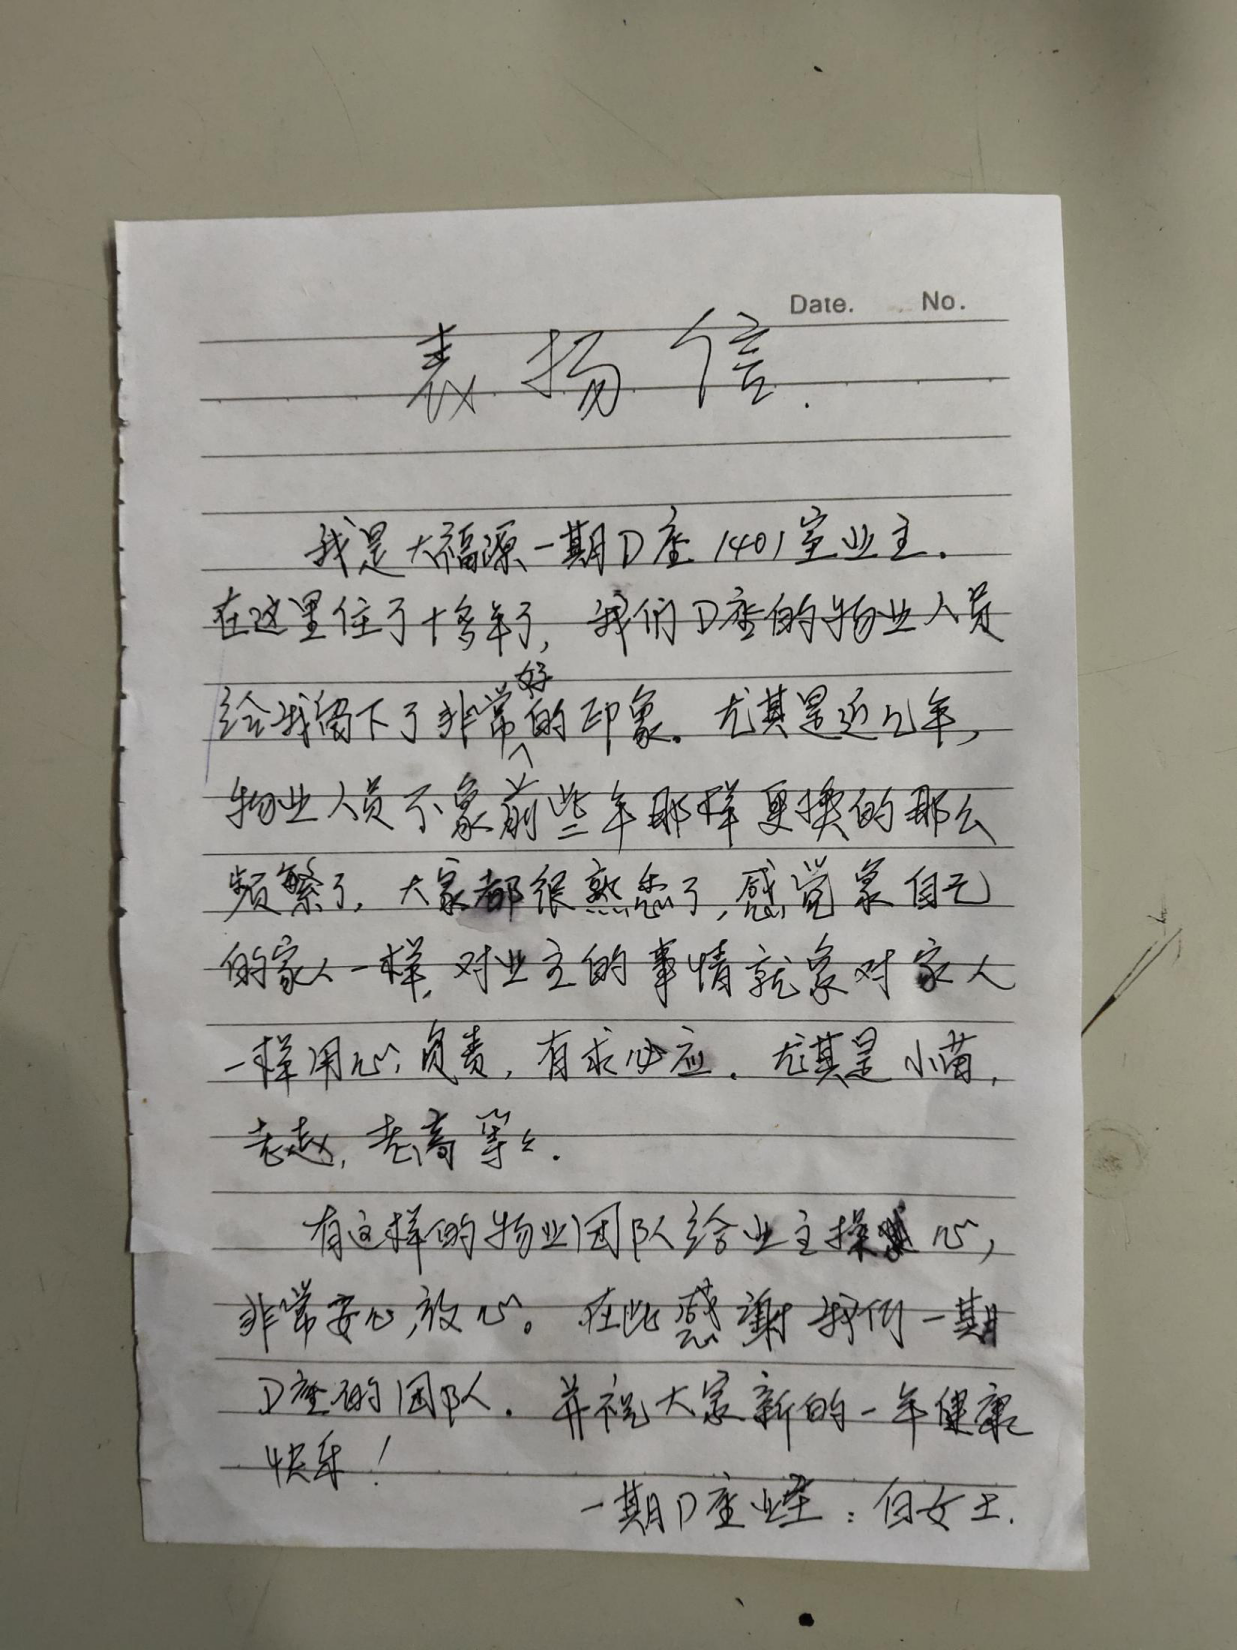 Date. No.
表扬信.
我是大福源一期D座1401室业主.
在这里住了十多年了, 我们D座的物业人员
给我留下了非常好的印象。尤其是近几年,
物业人员不象前些年那样更换的那么
频繁了, 大家都很熟悉了, 感觉象自己
的家人一样, 对业主的事情就象对家人
一样用心, 负责, 有求必应. 尤其是小苗,
老赵, 老高等等.
有这样的物业团队给业主操心,
非常安心, 放心。在此感谢我们一期
D座的团队. 并祝大家新的一年健康
快乐!
一期D座业主: 白女士.